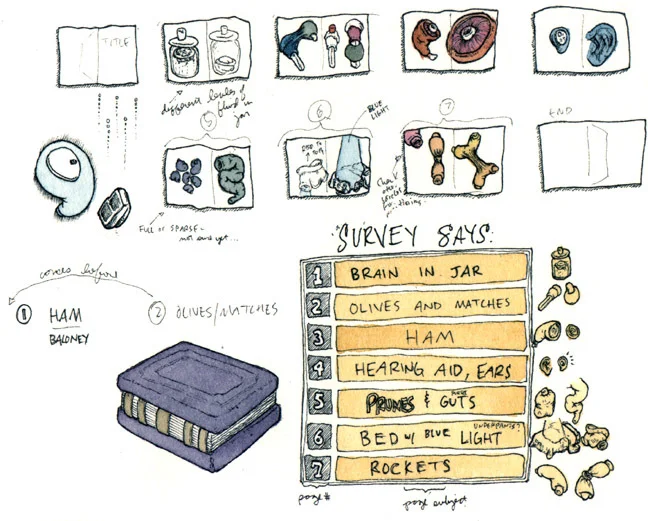 TITLE
different levels of fluid in jar
5
6
BLUE
LIGHT
7
END
FULL OR SPARSE -
not enough yet...
comes before
1 HAM
BALONEY
2 OLIVES/MATCHES
SURVEY SAYS:
1 BRAIN IN JAR
2 OLIVES AND MATCHES
3 HAM
4 HEARING AID, EARS
5 PRUNES & GUTS
6 BED w/ BLUE LIGHT
UNDERPANTS?
7 ROCKETS
page #
page subject